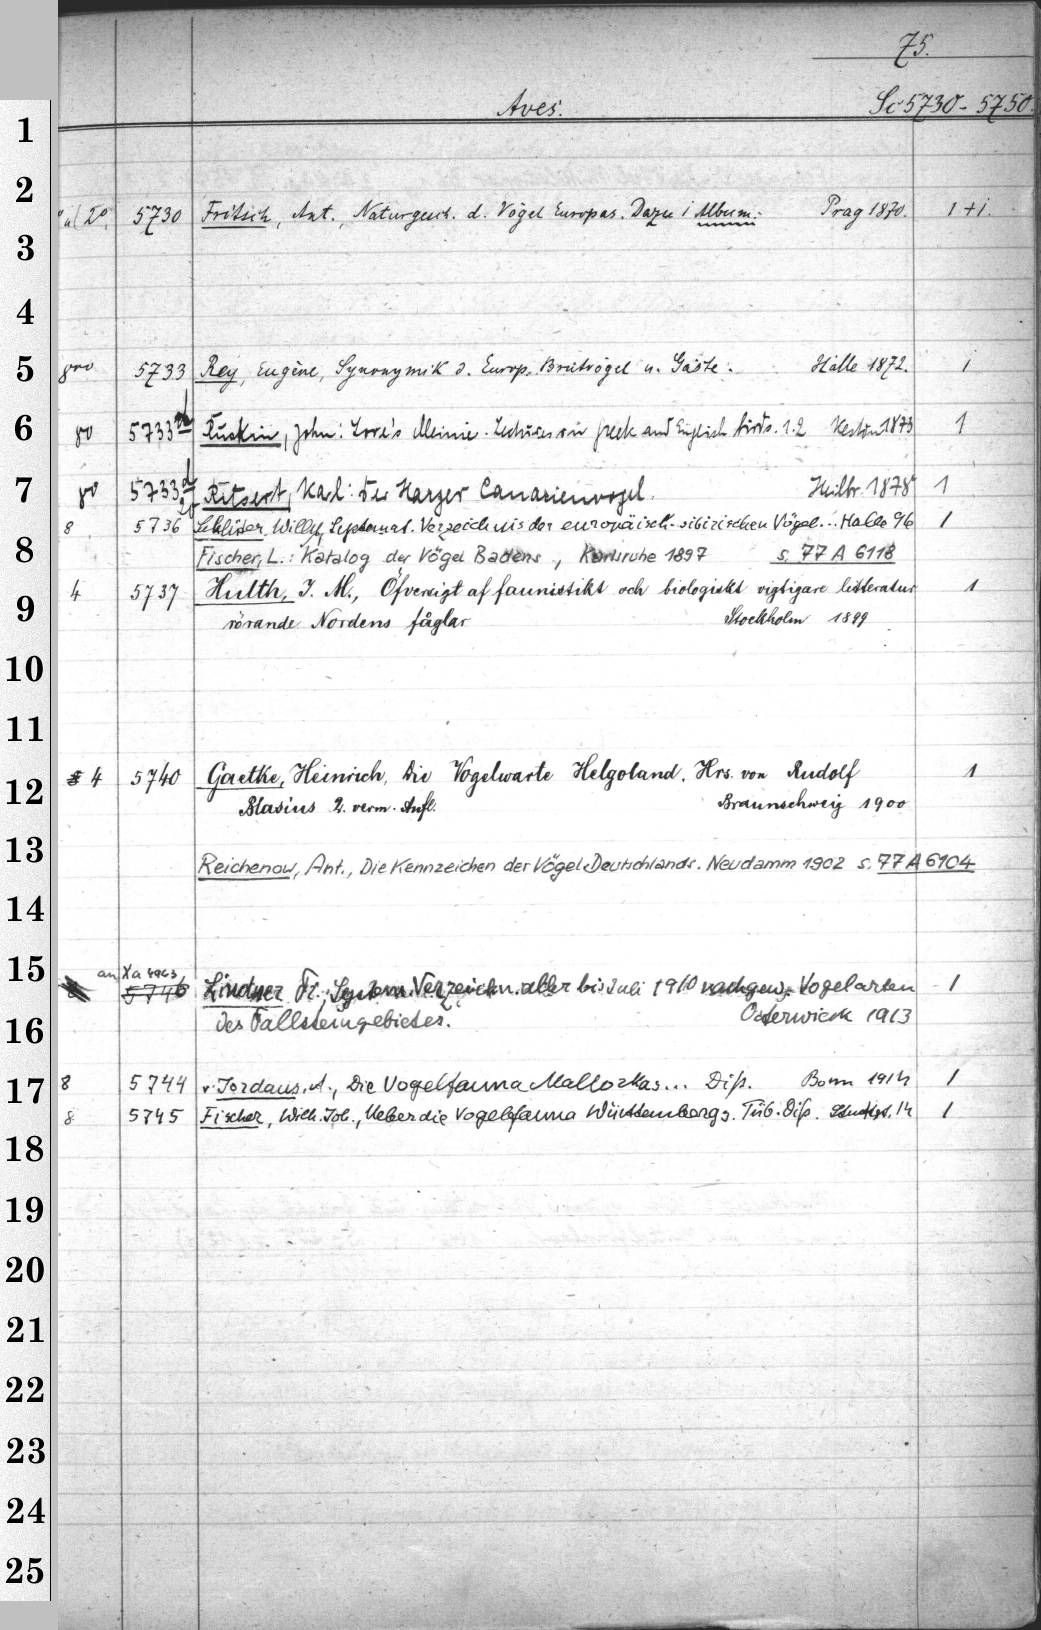 75.
Aves. Sc 5730 - 5750.
5730 Fritsch, Ant., Naturgesch. d. Vögel Europas. Dazu 1 Album. Prag 1870. 1 + 1.
5733 Rey, Eugène, Synonymik d. Europ. Brutvögel u. Gäste. Halle 1872. 1
80 5733 Ruskin, John: Love's Meinie. Lectures on Greek and English birds. 1.2 1873 1
80 5733 Ritsert, Karl: Der Harzer Canarienvogel. 1878 1
8 5736 Schlüter, Willy, Systemat. Verzeichnis der europäisch-sibirischen Vögel... Halle 96 1
Fischer, L.: Katalog der Vögel Badens, Karlsruhe 1897 s. 77 A 6118
4 5737 Hulth, J. M., Öfversigt af faunistikt och biologiskt vigtigare litteratur 1
rörande Nordens fåglar Stockholm 1899
4 5740 Gaetke, Heinrich, Die Vogelwarte Helgoland. Hrs. von Rudolf 1
Blasius 2. verm. Aufl. Braunschweig 1900
Reichenow, Ant., Die Kennzeichen der Vögel Deutschlands. Neudamm 1902 s. 77 A 6104
an Xa 4963
5743 Lindner Fr., System. Verzeichn. aller bis Juli 1910 nachgew. Vogelarten 1
des Fallsteingebietes. Osterwieck 1913
8 5744 v. Jordans, A., Die Vogelfauna Mallorkas... Diss. Bonn 1914 1
8 5745 Fischer, Wilh. Joh., Ueber die Vogelfauna Württembergs. Tüb. Diss. Stuttgt. 14 1
1
2
3
4
5
6
7
8
9
10
11
12
13
14
15
16
17
18
19
20
21
22
23
24
25